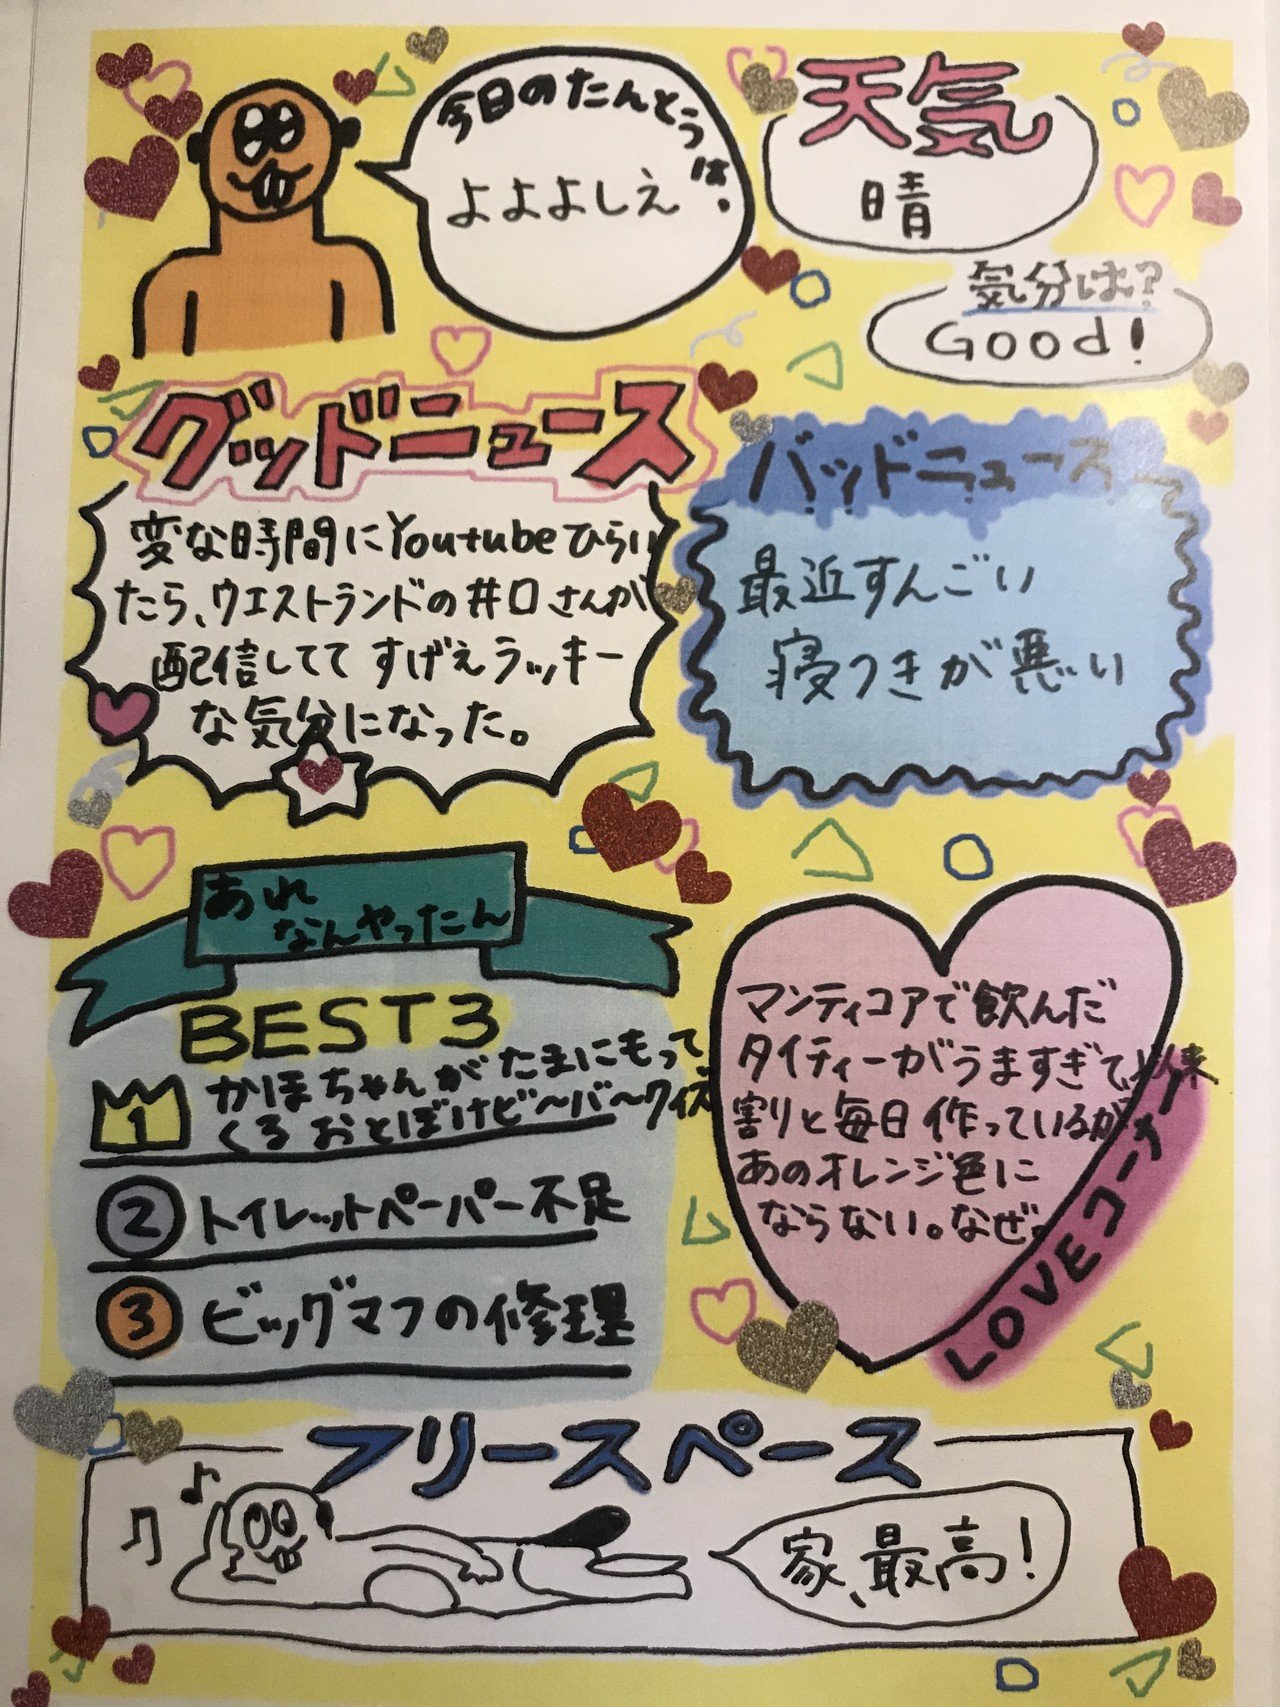 今日のたんとうは、
よよよしえ
天気
晴
気分は？
Good！
グッドニュース
変な時間にYoutubeひらい
たら、ウエストランドの井口さんが
配信してて すげぇラッキー
な気分になった。
バッドニュース
最近すんごい
寝つきが悪い
あれ
なんやったん
BEST3
1
かほちゃんがたまにもって
くるおとぼけビ〜バ〜クイズ
2 トイレットペーパー不足
3 ビッグマフの修理
マンティコアで飲んだ
タイティーがうますぎて、以来
割りと毎日作っているが、
あのオレンジ色に
ならない。なぜ。
LOVEコーナー
フリースペース
家、最高！